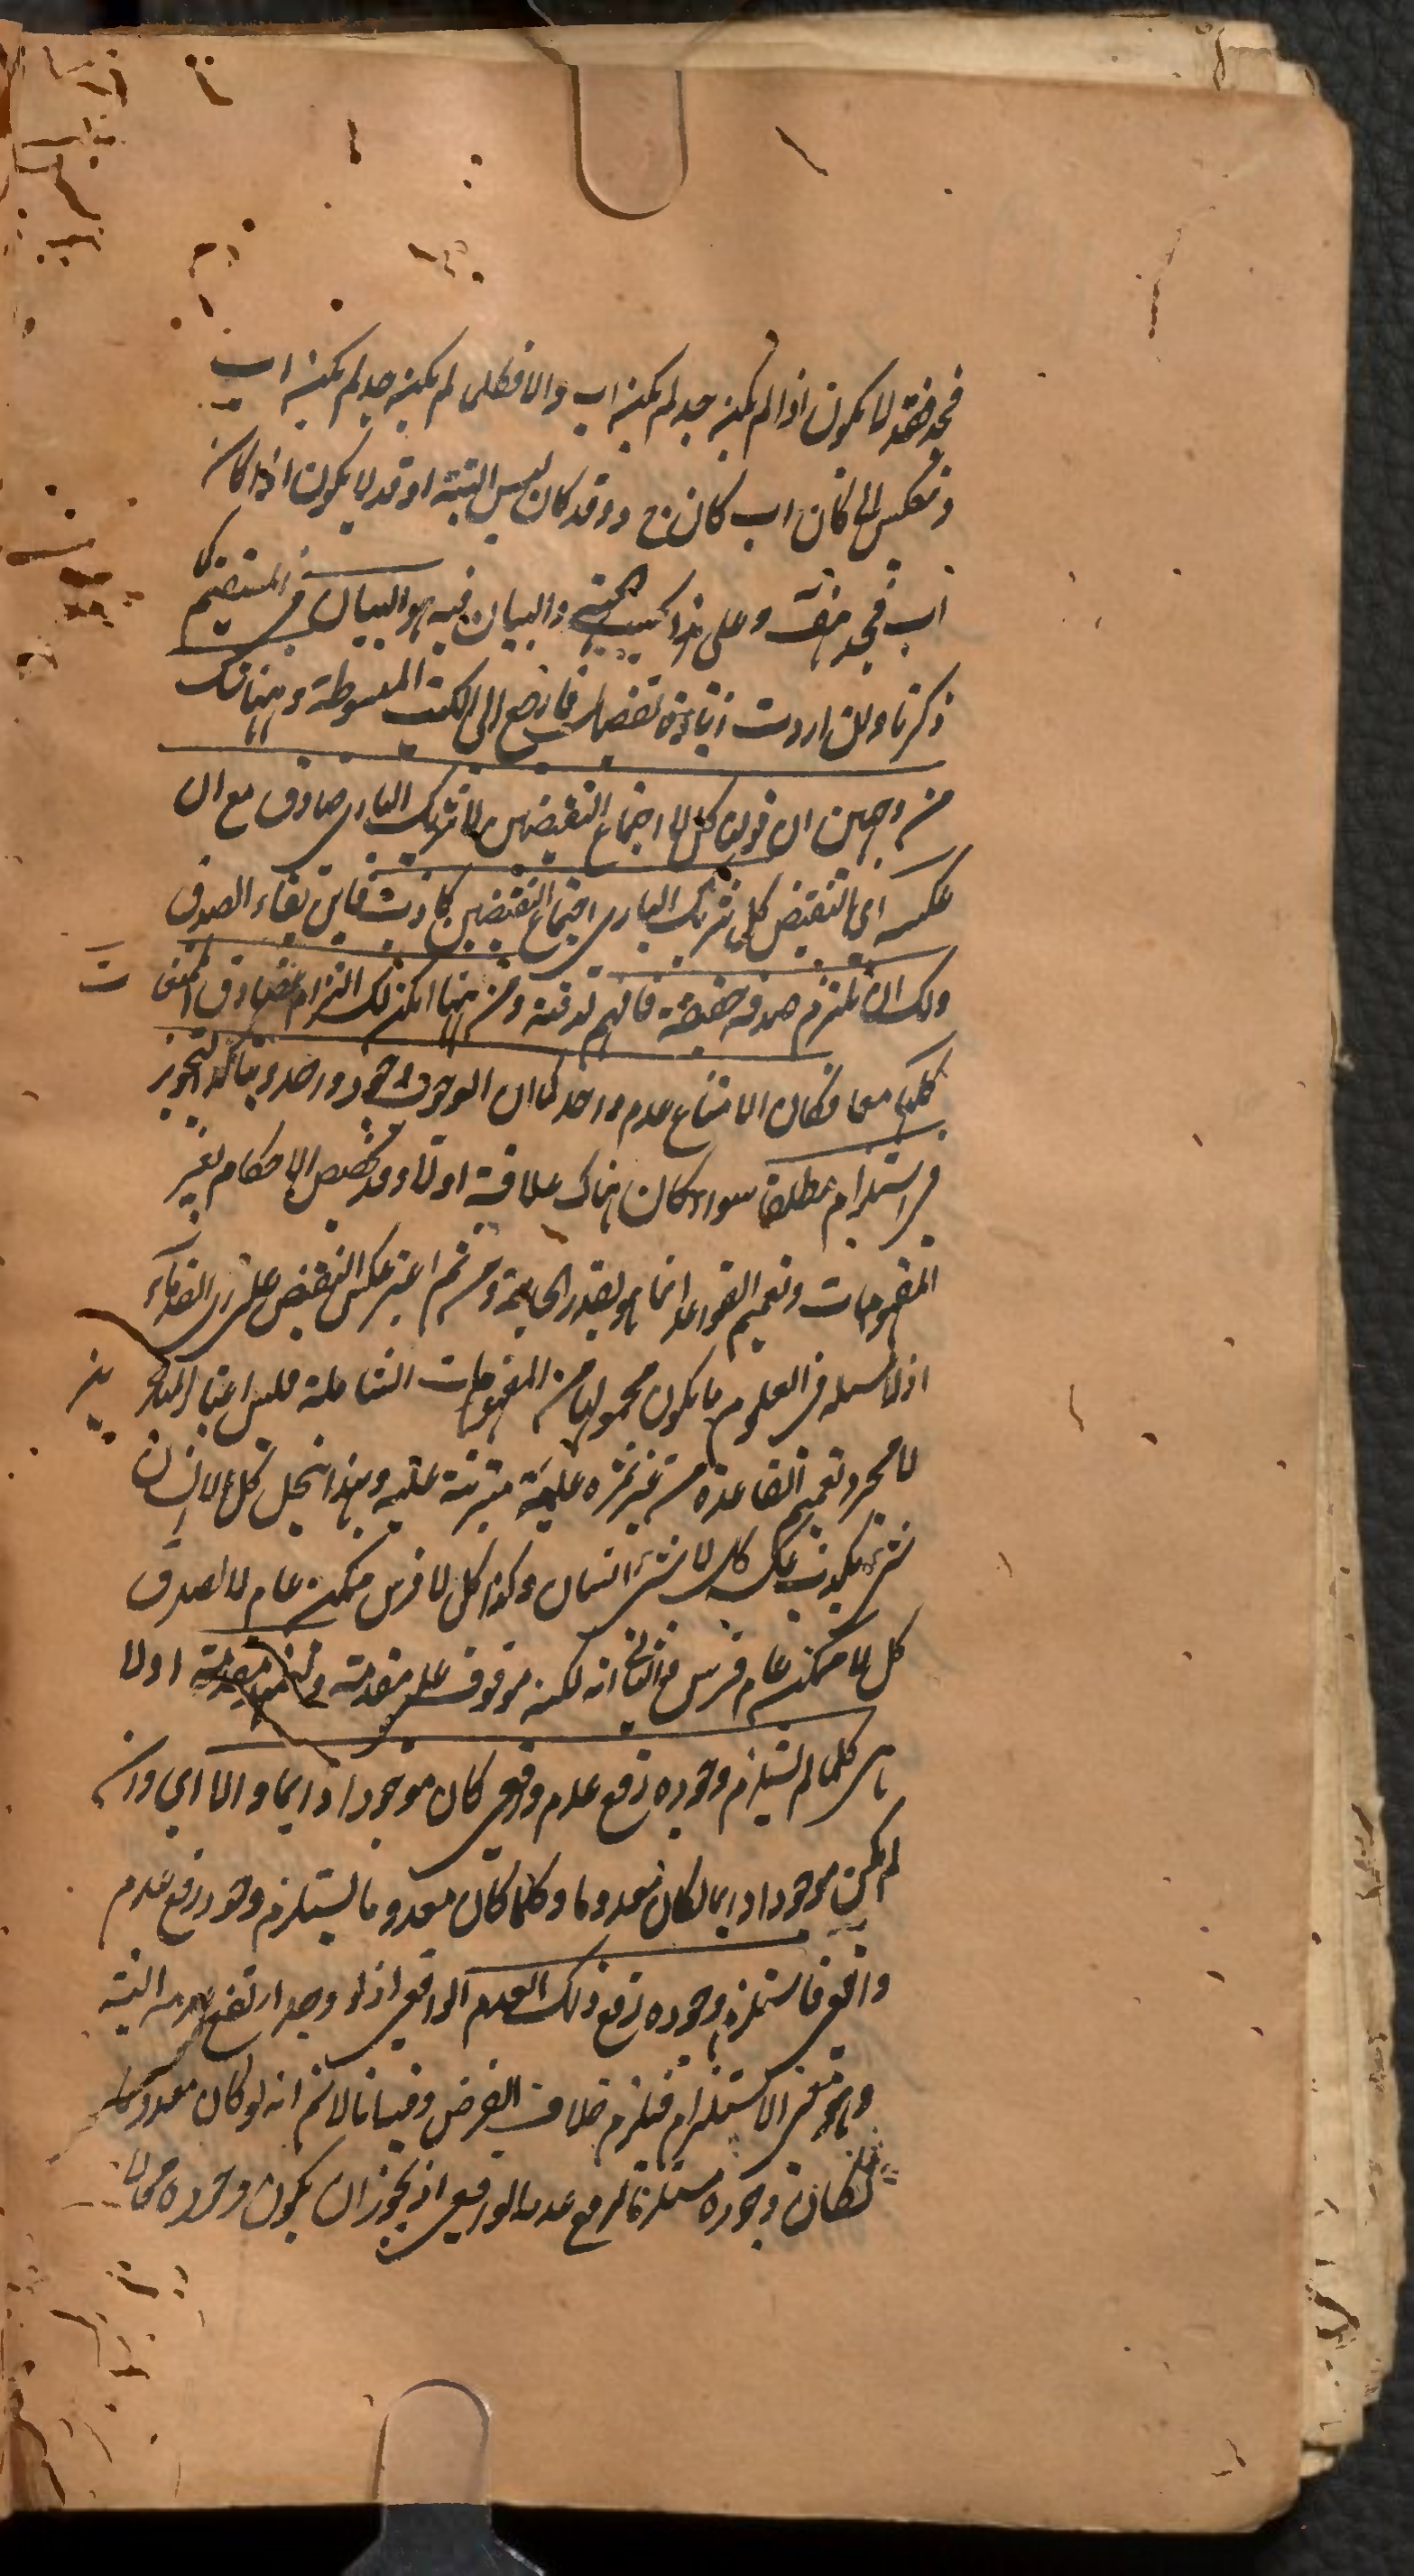 فجد فقد لا يكون اذا لم يكن جد لم يكن اب والا فكلما لم يكن جد لم يكن اب
وتنعكس لما كان اب كان ج د وقد كان ليس البتة او قد لا يكون اذا كان
اب فجد هف وعلى هذا والبيان فيه هو البيان في المستقيم كما
ذكرنا وان اردت زيادة تفصيل فارجع الى الكتب المبسوطة وههنا شك
من وجهين ان قولنا كل لا اجتماع النقيضين لا شريك الباري صادق مع ان
عكسه اى بالنقيض كل شريك الباري اجتماع النقيضين كاذب فاين بقاء الصدق
ولك ان تلتزم صدقه حقيقة فافهم تدقته ومن ههنا امكن لك التزام تصادق الممتنعات
كلها معا فكان الامتناع عدم واحد كما ان الوجوب وجود واحد ويتأكد لتجويز
في استلزام مطلقا سواء كان هناك علاقة او لا وقد تخصص الاحكام بغير
المفهومات وتعميم القواعد انما هو بقدر الحاجة ومن ثم اعتبر عكس النقيض على راى القدماء
اذ لا مسئلة في العلوم ما يكون محمولها من المفهومات الشاملة فليس اعتبار المتأخرين
لا مجرد تعميم القاعدة من غير ثمرة علمية مترتبة عليه وبهذا ينحل كل لا انسان
شئ يكذب عكسه كل لا شئ انسان وكذا كل لا فرس ممكن عام لا لصدق
كل لا ممكن عام فرس والثاني انه لكنه موقوف على مقدمة اولا
هي كلما لم يستلزم وجوده رفع عدم واقعي كان موجودا دايما والا اى وان
لم يكن موجودا دايما لكان معدوما وكلما كان معدوما يستلزم وجوده رفع عدم
واقعي فاستلزم وجوده رفع ذلك العدم الواقعي اذ لو وجد ارتفع عدمه البتة
وهو معنى الاستلزام فيلزم خلاف الفرض وفيه انا لا نم انه لو كان معدوما
لكان وجوده مستلزما لرفع عدمه الواقعي اذ يجوز ان يكون وجوده محالا